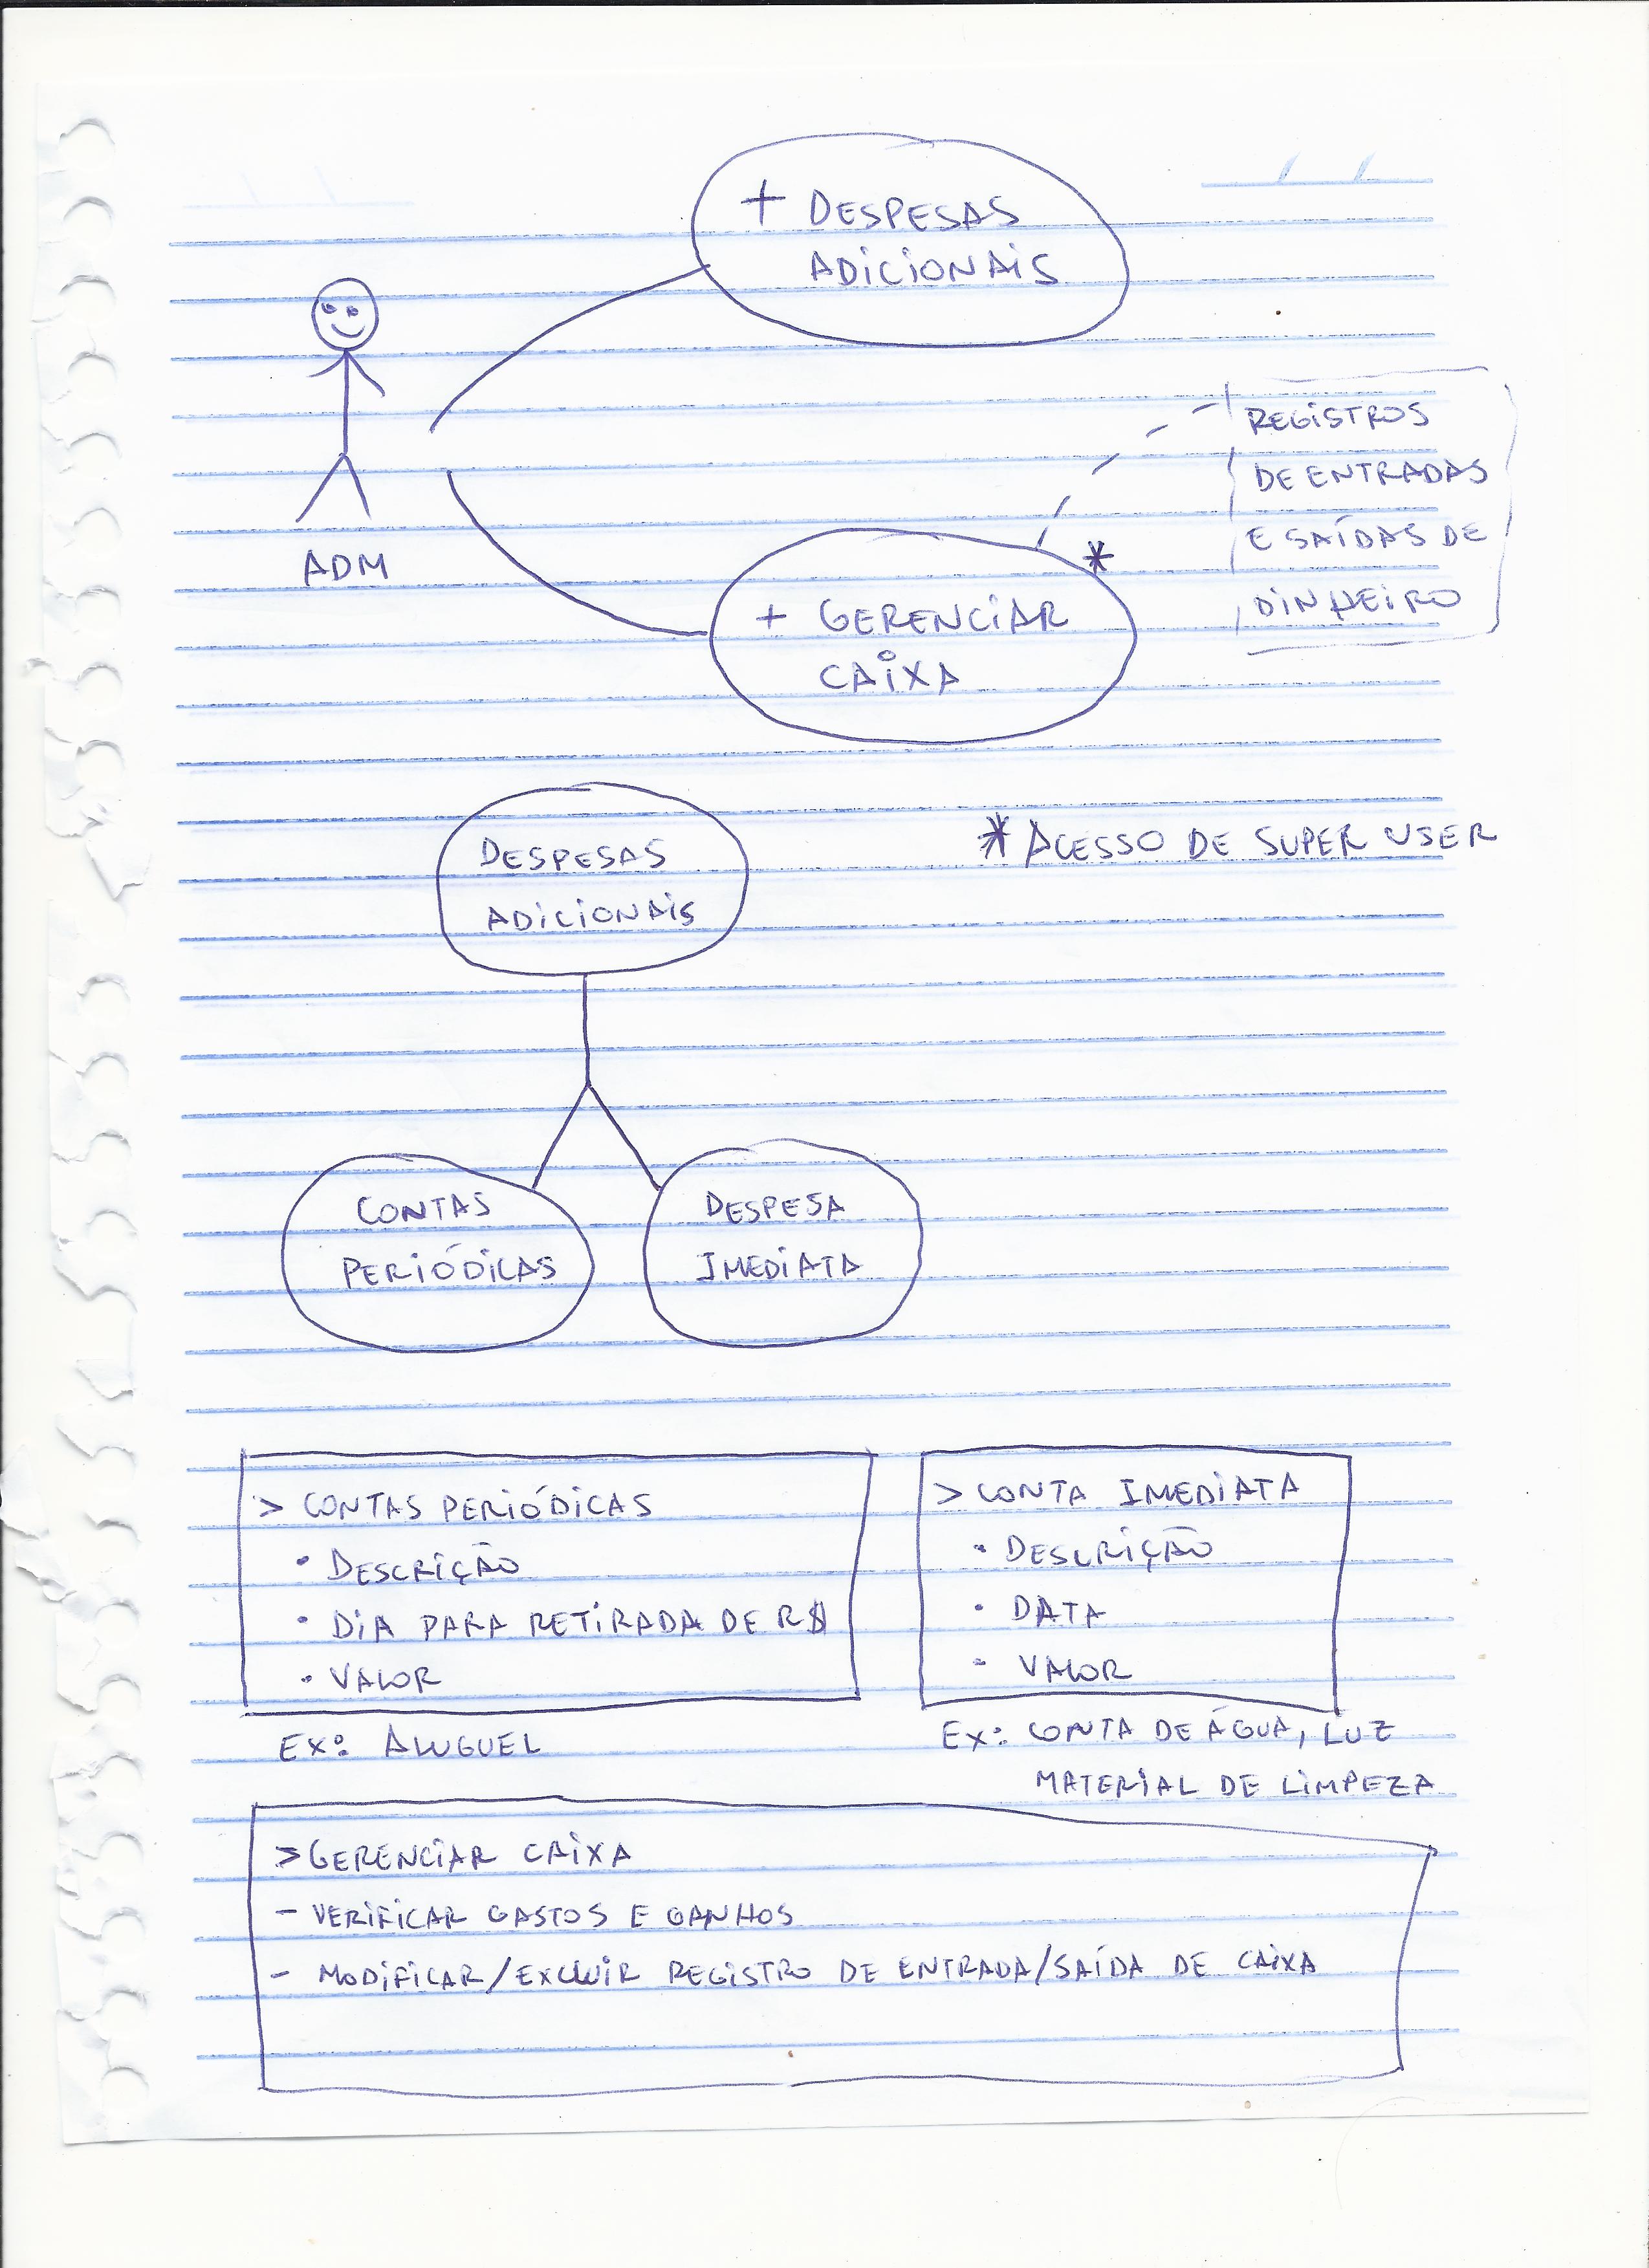 + DESPESAS
ADICIONAIS
REGISTROS
DE ENTRADAS
E SAÍDAS DE
DINHEIRO
ADM
*
+ GERENCIAR
CAIXA
* ACESSO DE SUPER USER
DESPESAS
ADICIONAIS
CONTAS
PERIÓDICAS
DESPESA
IMEDIATA
> CONTAS PERIÓDICAS
• DESCRIÇÃO
• DIA PARA RETIRADA DE R$
• VALOR
EX: ALUGUEL
> CONTA IMEDIATA
• DESCRIÇÃO
• DATA
• VALOR
EX: CONTA DE ÁGUA, LUZ
MATERIAL DE LIMPEZA
> GERENCIAR CAIXA
- VERIFICAR GASTOS E GANHOS
- MODIFICAR/EXCLUIR REGISTRO DE ENTRADA/SAÍDA DE CAIXA